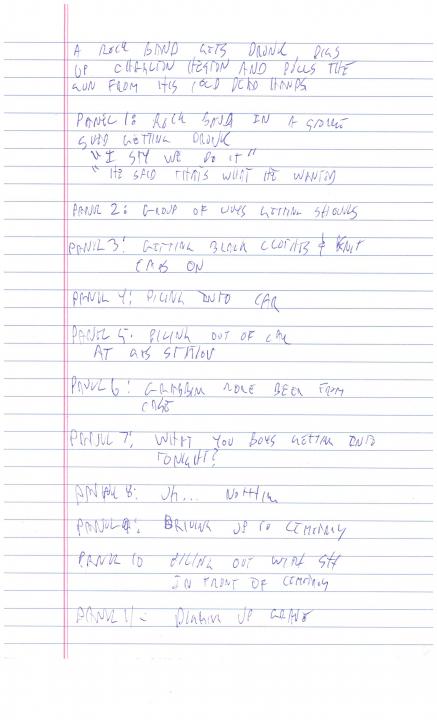 A ROCK BAND GETS DRUNK, DIGS
UP CHARLTON HESTON AND PULLS THE
GUN FROM HIS COLD DEAD HANDS
PANEL 1: ROCK BAND IN A
GETTING DRUNK
"I SAY WE DO IT"
"HE SAID THAT'S WHAT HE WANTED
PANEL 2: GROUP OF GUYS GETTING SHOVELS
PANEL 3: GETTING BLACK CLOTHES & KNIT
CAPS ON
PANEL 4: PILING INTO CAR
PANEL 5: PILING OUT OF CAR
AT GAS STATION
PANEL 6: GRABBIN MORE BEER FROM
CASE
PANEL 7: WHAT YOU BOYS GETTING INTO
TONIGHT?
PANEL 8: UH... NOTHING
PANEL 9: DRIVING UP TO CEMETARY
PANEL 10 PILING OUT WITH
IN FRONT OF CEMETARY
PANEL 11: DIGGING UP GRAVE